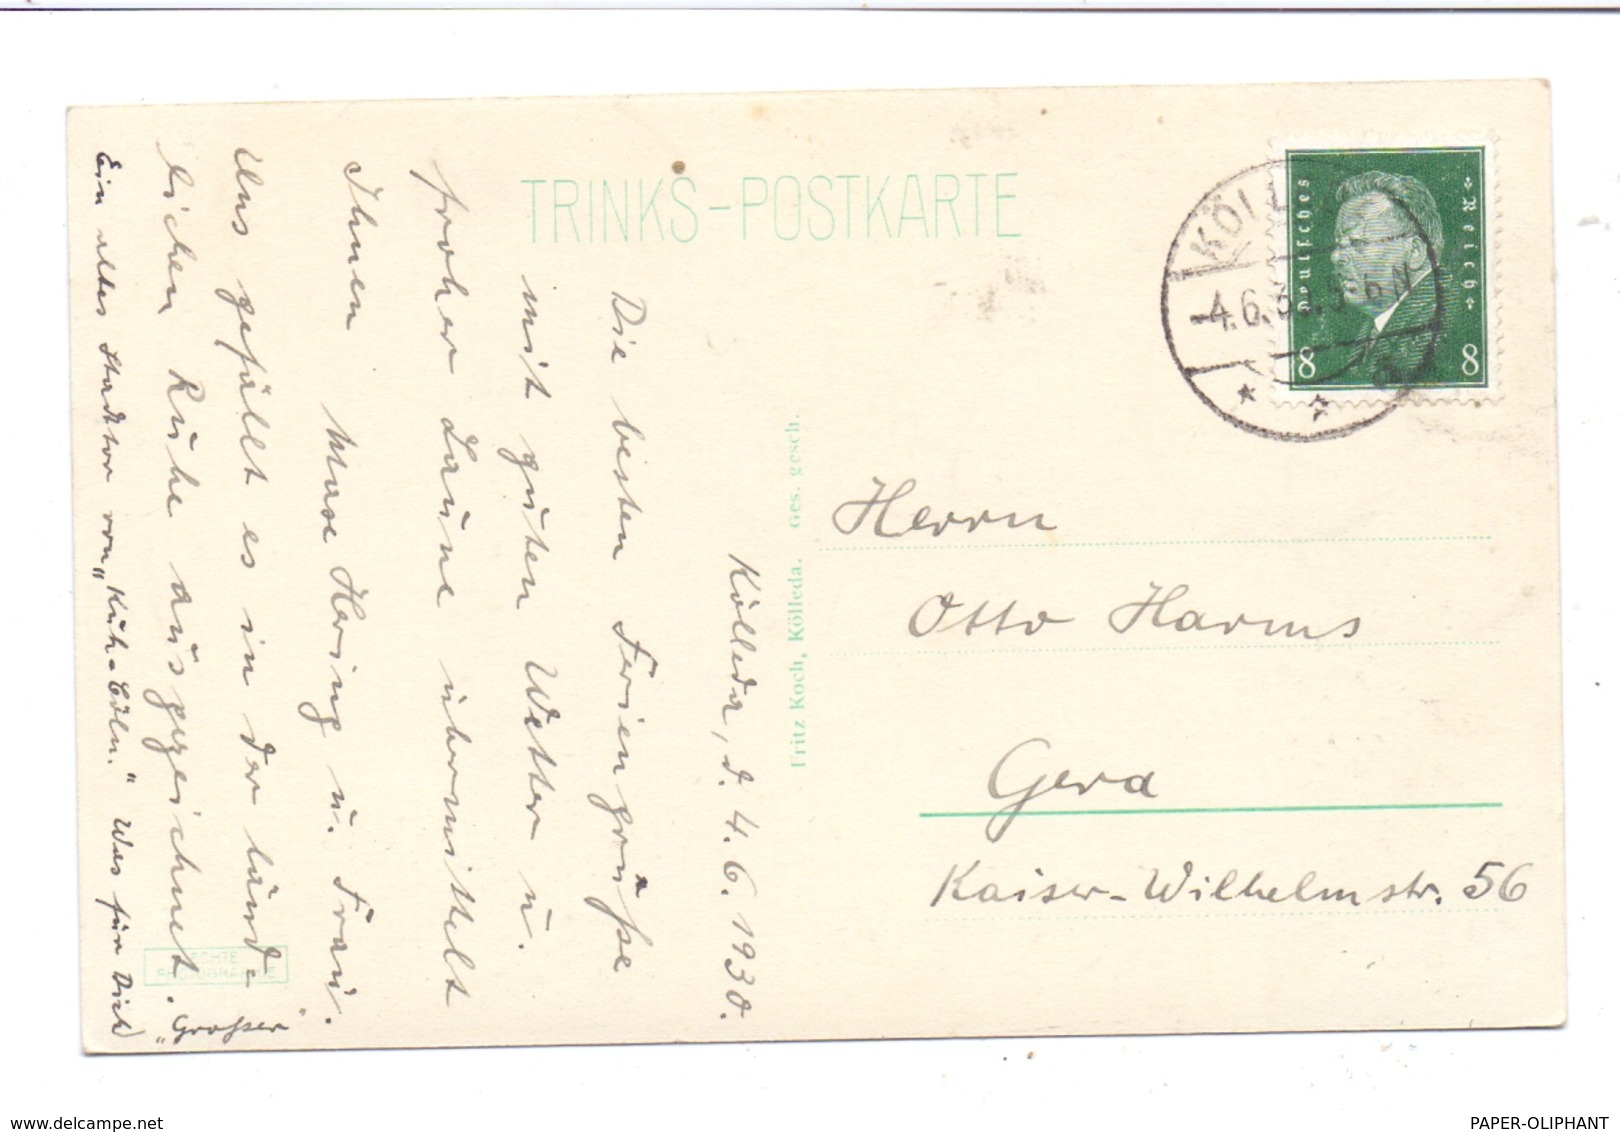 TRINKS-POSTKARTE
Deutsches Reich
8 8
KÖLL
-4.6.3
6 N
Kölleda, d. 4.6.1930.
Die besten Feriengrüße
mit guten Wetter u.
froher Laune übermittelt
Ihnen Max Hering u. Frau.
Uns gefällt es in der länd-
lichen Ruhe ausgezeichnet.
Ein altes Stadttor von „Kuh-Cöln." Was für Dich
„Großer"
ECHTE
PHOTOGRAPHIE
Fritz Koch, Kölleda. Ges. gesch.
Herrn
Otto Harms
Gera
Kaiser-Wilhelmstr. 56
PAPER-OLIPHANT
www.delcampe.net